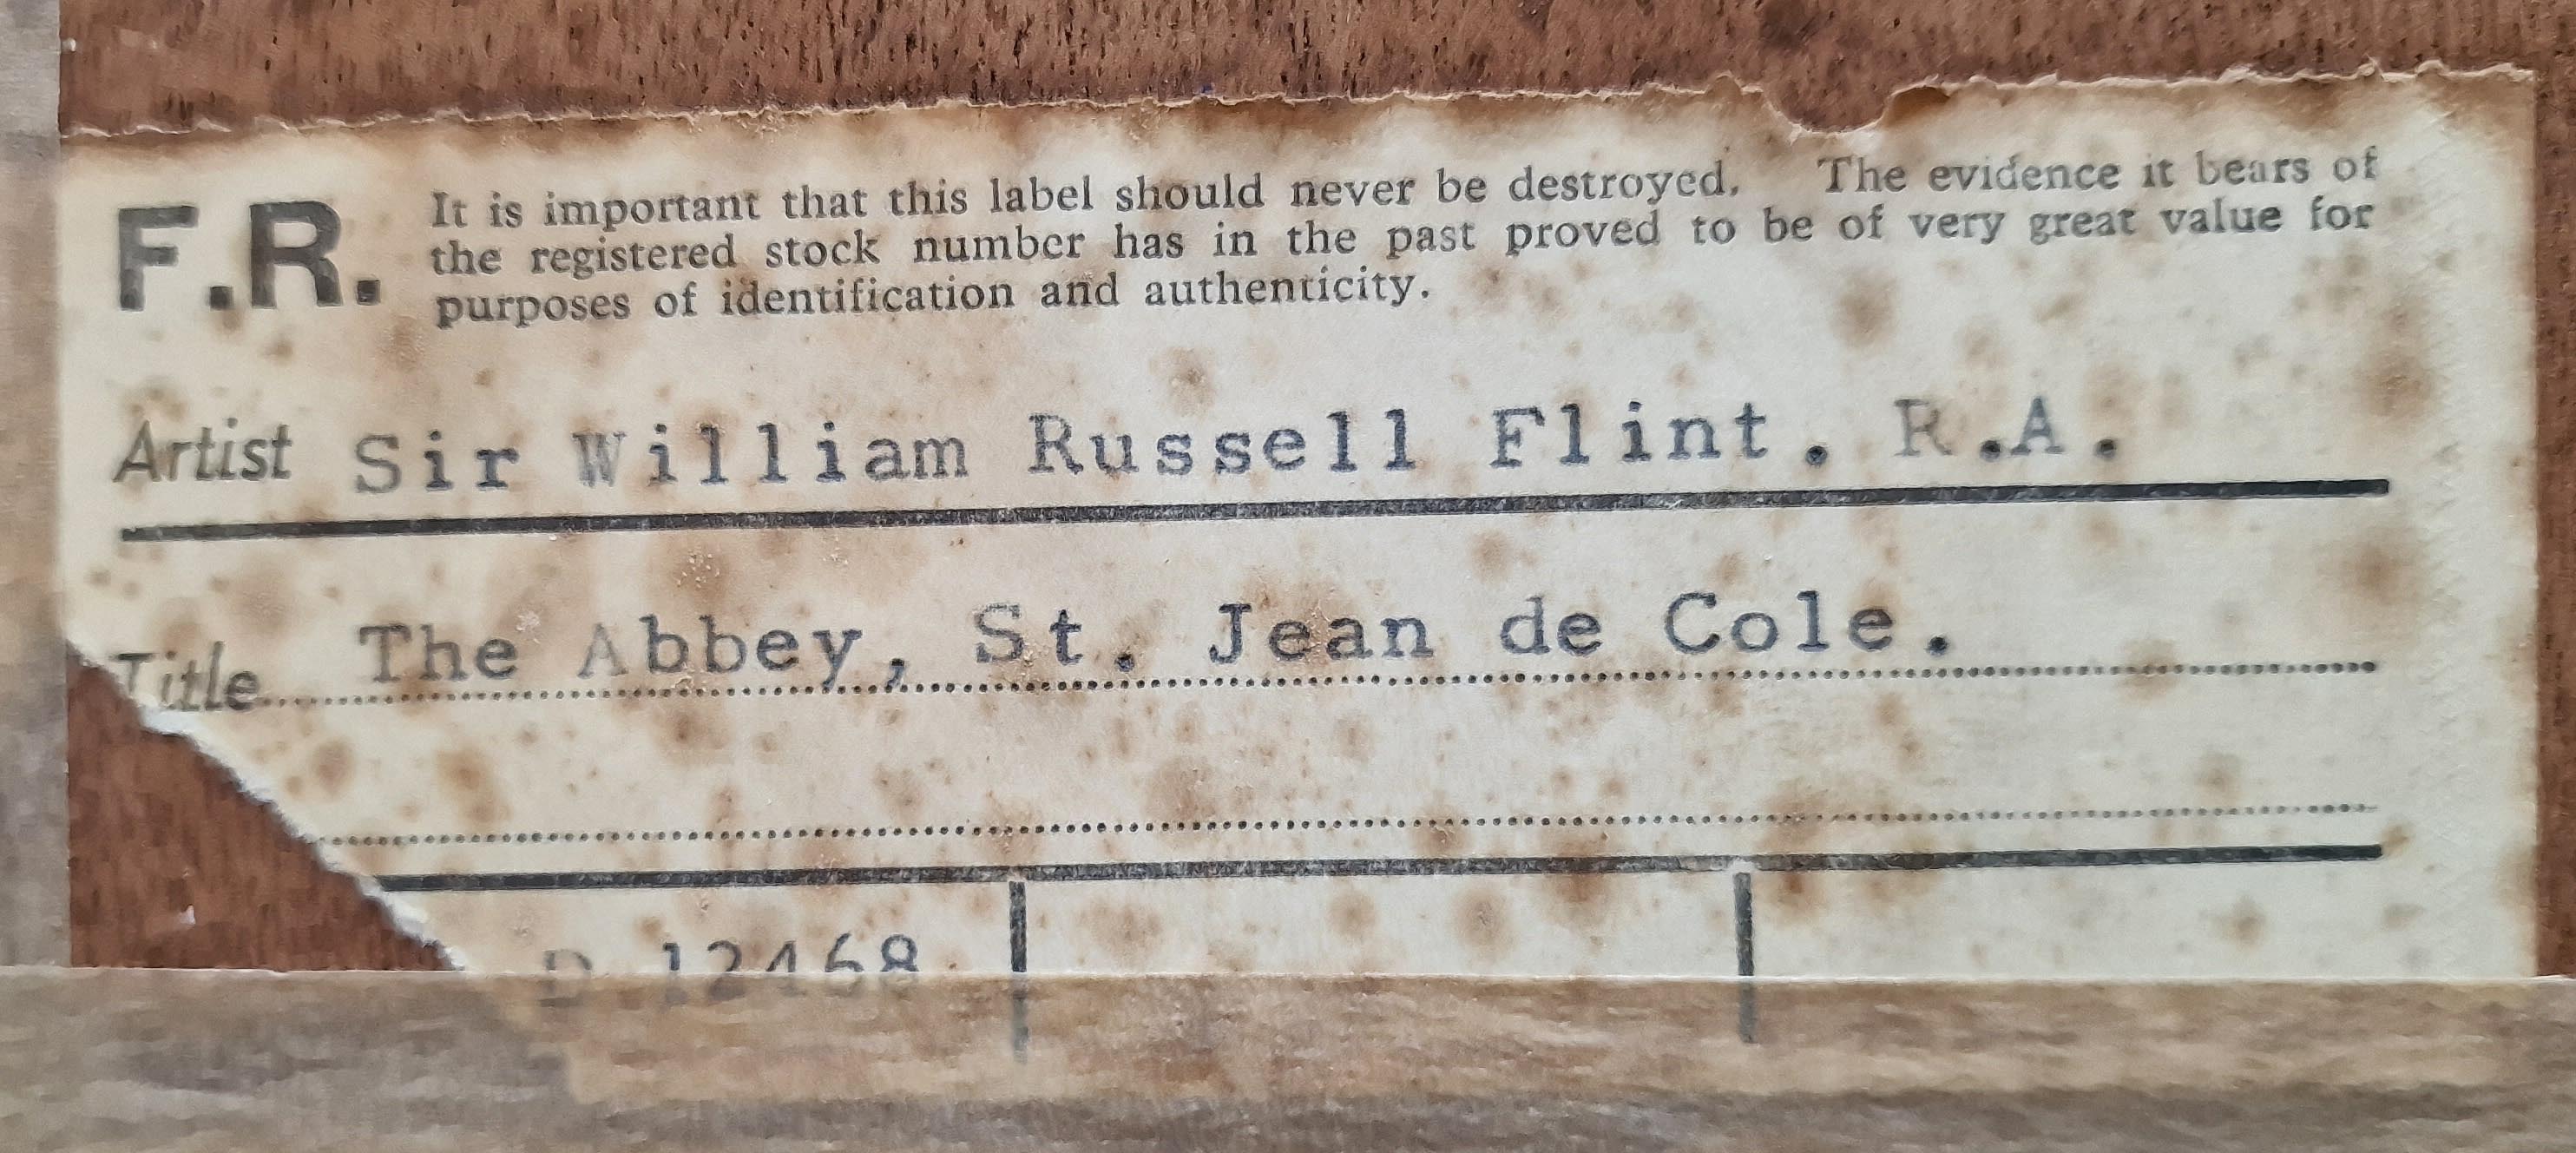 F.R. It is important that this label should never be destroyed. The evidence it bears of
the registered stock number has in the past proved to be of very great value for
purposes of identification and authenticity.
Artist Sir William Russell Flint. R.A.
Title The Abbey, St. Jean de Cole.
D 12468